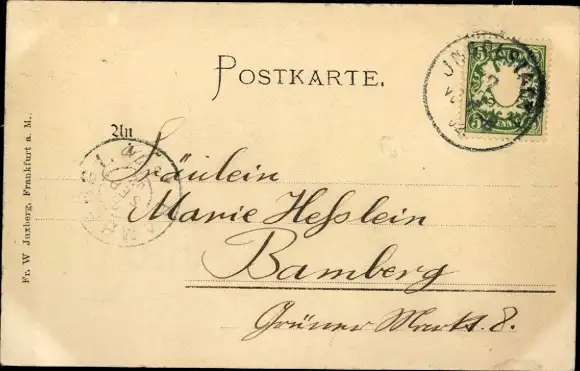 POSTKARTE.
An
Fräulein
Marie Hesslein
Bamberg
Grüner Markt. 8.
Fr. W Juxberg, Frankfurt a. M.
BAMBERG I.
5
5